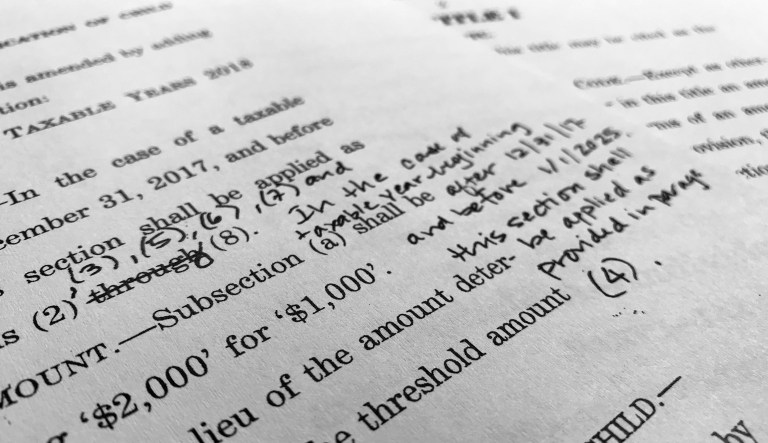 CATION OF CHILD
is amended by adding
tion:
TAXABLE YEARS 2018
—In the case of a taxable
cember 31, 2017, and before
section shall be applied as
(3), (5), (6), (7) and
(2) through (8).
In the case of
taxable year beginning
after 12/31/17
and before 1/1/2025.
this section shall
be applied as
provided in
(4).
MOUNT.—Subsection (a) shall be
'$2,000' for '$1,000'.
lieu of the amount deter-
threshold amount
HILD.—
by
TITLE I
title may be cited as the
CODE.—Except as other-
in this title an
ms of an
ovision,